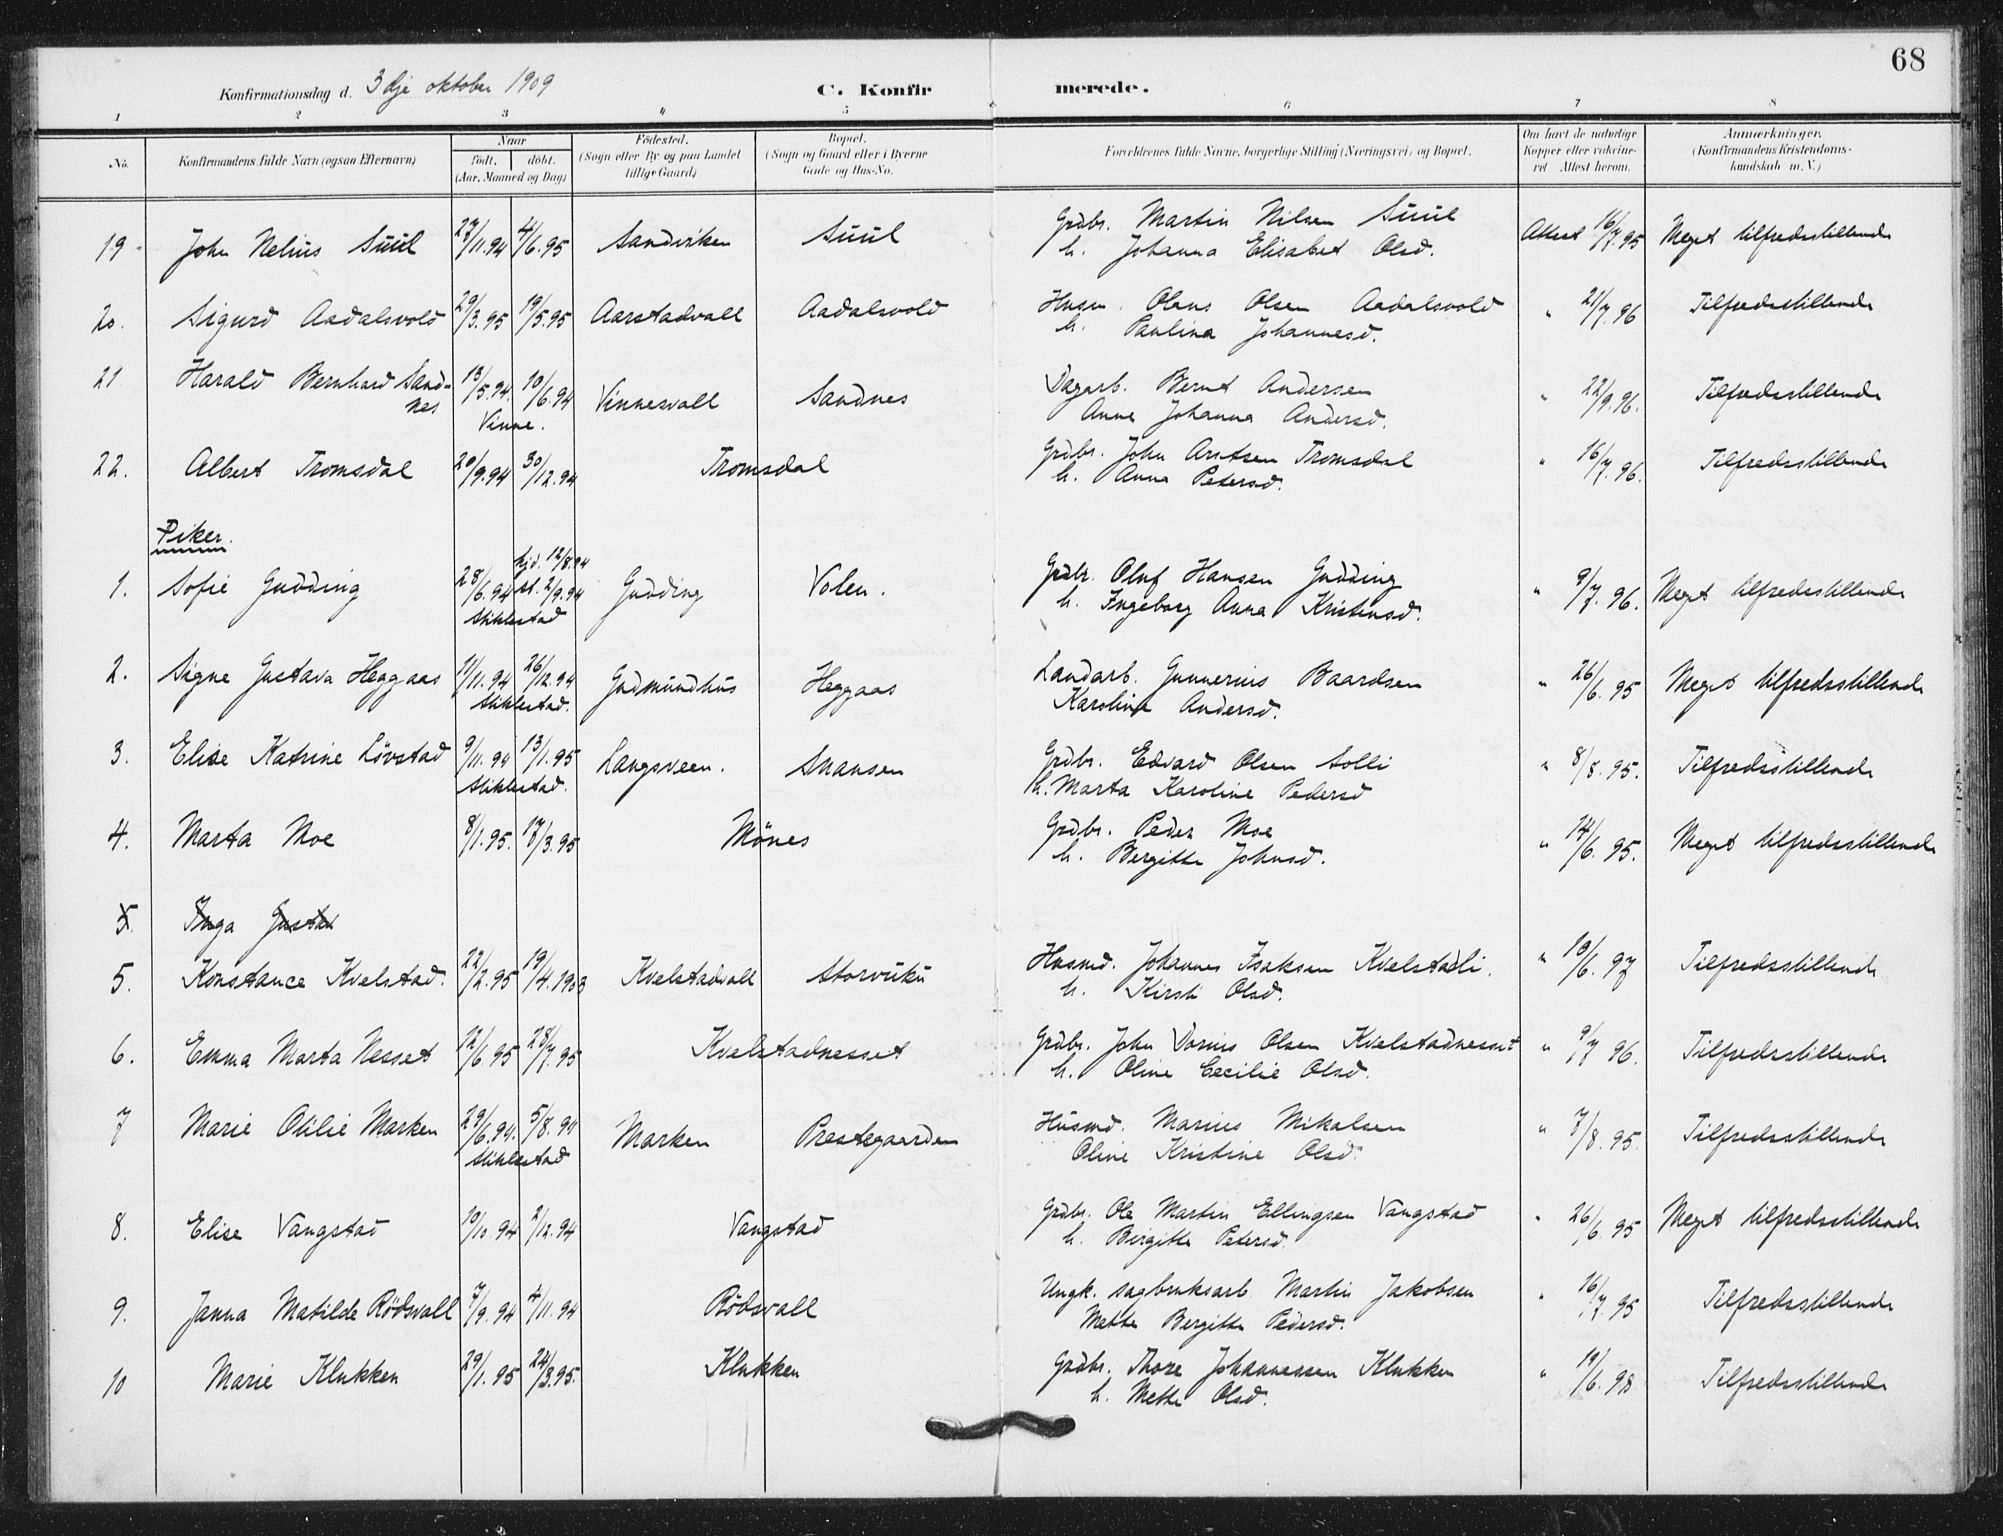 68
Konfirmationsdag d. 3dje oktober 1909 C. Konfirmerede.
1 2 3 4 5 6 7 8
No. Konfirmandens fulde Navn (ogsaa Efternavn) Naar født. døbt. (Aar, Maaned og Dag) Fødested. (Sogn eller By og paa Landet tillige Gaard) Bopæl. (Sogn og Gaard eller i Byerne Gade og Hus-No. Forældrenes fulde Navne, borgerlige Stilling (Næringsvei) og Bopæl. Om havt de naturlige Kopper eller vaccineret Attest herom. Anmærkninger. (Konfirmandens Kristendomskundskab m. V.)
19 John Nelius Suul 27/11.94 4/6.95 Sandviken Suul Grdbr. Martin Nilsen Suul Attest 16/7.95 Meget tilfredsstillende
h. Johanna Elisabet Olsd.
20. Sigurd Aadalsvold 29/3.95 19/5.95 Aarstadvall Aadalsvold Husm. Olaus Olsen Aadalsvold " 21/7.96 Tilfredsstillende
h. Paulina Johannesd.
21 Harald Bernhard Sand- 13/5.94. 10/6.94 Vinnesvall Sandnes Dagarb. Bernt Andersen " 22/9.96. Tilfredsstillende
nes Vinne. Anne Johanna Andersd.
22. Albert Tromsdal 20/9.94 30/12.94 Tromsdal Grdbr. John Arntsen Tromsdal " 16/7.96. Tilfredsstillende
h. Anna Petersd.
Piker.
1. Sofie Gudding 28/6.94 hjd. 12/8.94 st. 2/9.94 Gudding Volen. Grdbr. Oluf Hansen Gudding " 9/7.96. Meget tilfredsstillende
Stiklestad h. Ingeborg Anna Kristensd.
2. Signe Gustava Heggaas 11/11.94 26/12.94 Gudmundhus Heggaas Landarb. Gunnerius Baardsen " 26/6.95 Meget tilfredsstillende
Stiklestad. Karoline Andersd.
3. Elise Katrine Løvstad 9/11.94 13/1.95 Langsveen. Snausen Grdbr. Edvard Olsen Solli " 8/8.95. Tilfredsstillende
Stiklestad. h. Marta Karoline Pedersd
4. Marta Moe 8/1.95. 17/3.95 Mönes Grdbr. Peder Moe " 14/6.95. Meget tilfredsstillende
h. Bergitte Johnsd.
5 Inga Gustav
5. Konstance Kvelstad. 22/2.95 19/4.1903 Kvelstadvall Storvuku Husmd. Johannes Isaksen Kvelstadli. " 10/6.97 Tilfredsstillende
h. Kirsti Olsd.
6. Emma Marta Nesset 12/6.95 28/7.95 Kvelstadnesset Grdbr. John Dorius Olsen Kvelstadnesset " 9/7 96. Tilfredsstillende
h. Oline Cecilie Olsd.
7 Marie Otilie Marken 29/6.94. 5/8.94 Marken Prestegaarden Husmd. Marius Mikalsen " 7/8.95. Tilfredsstillende
Stiklestad Oline Kristine Olsd.
8. Elise Vangstad 10/10.94 2/12.94 Vangstad Grdbr. Ole Martin Ellingsen Vangstad " 26/6.95 Meget tilfredsstillende
h. Birgitte Petersd.
9. Janna Matilde Rödsvall 7/9.94 4/11.94 Rödsvall Ungk. sagbruksarb. Martin Jakobsen " 16/7.95 Tilfredsstillende
Mette Bergitte Pedersd.
10 Marie Klukken 29/1.95 24/3.95. Klukken Grdbr. Thore Johannessen Klukken " 19/6.98 Tilfredsstillende
h. Mette Olsd.